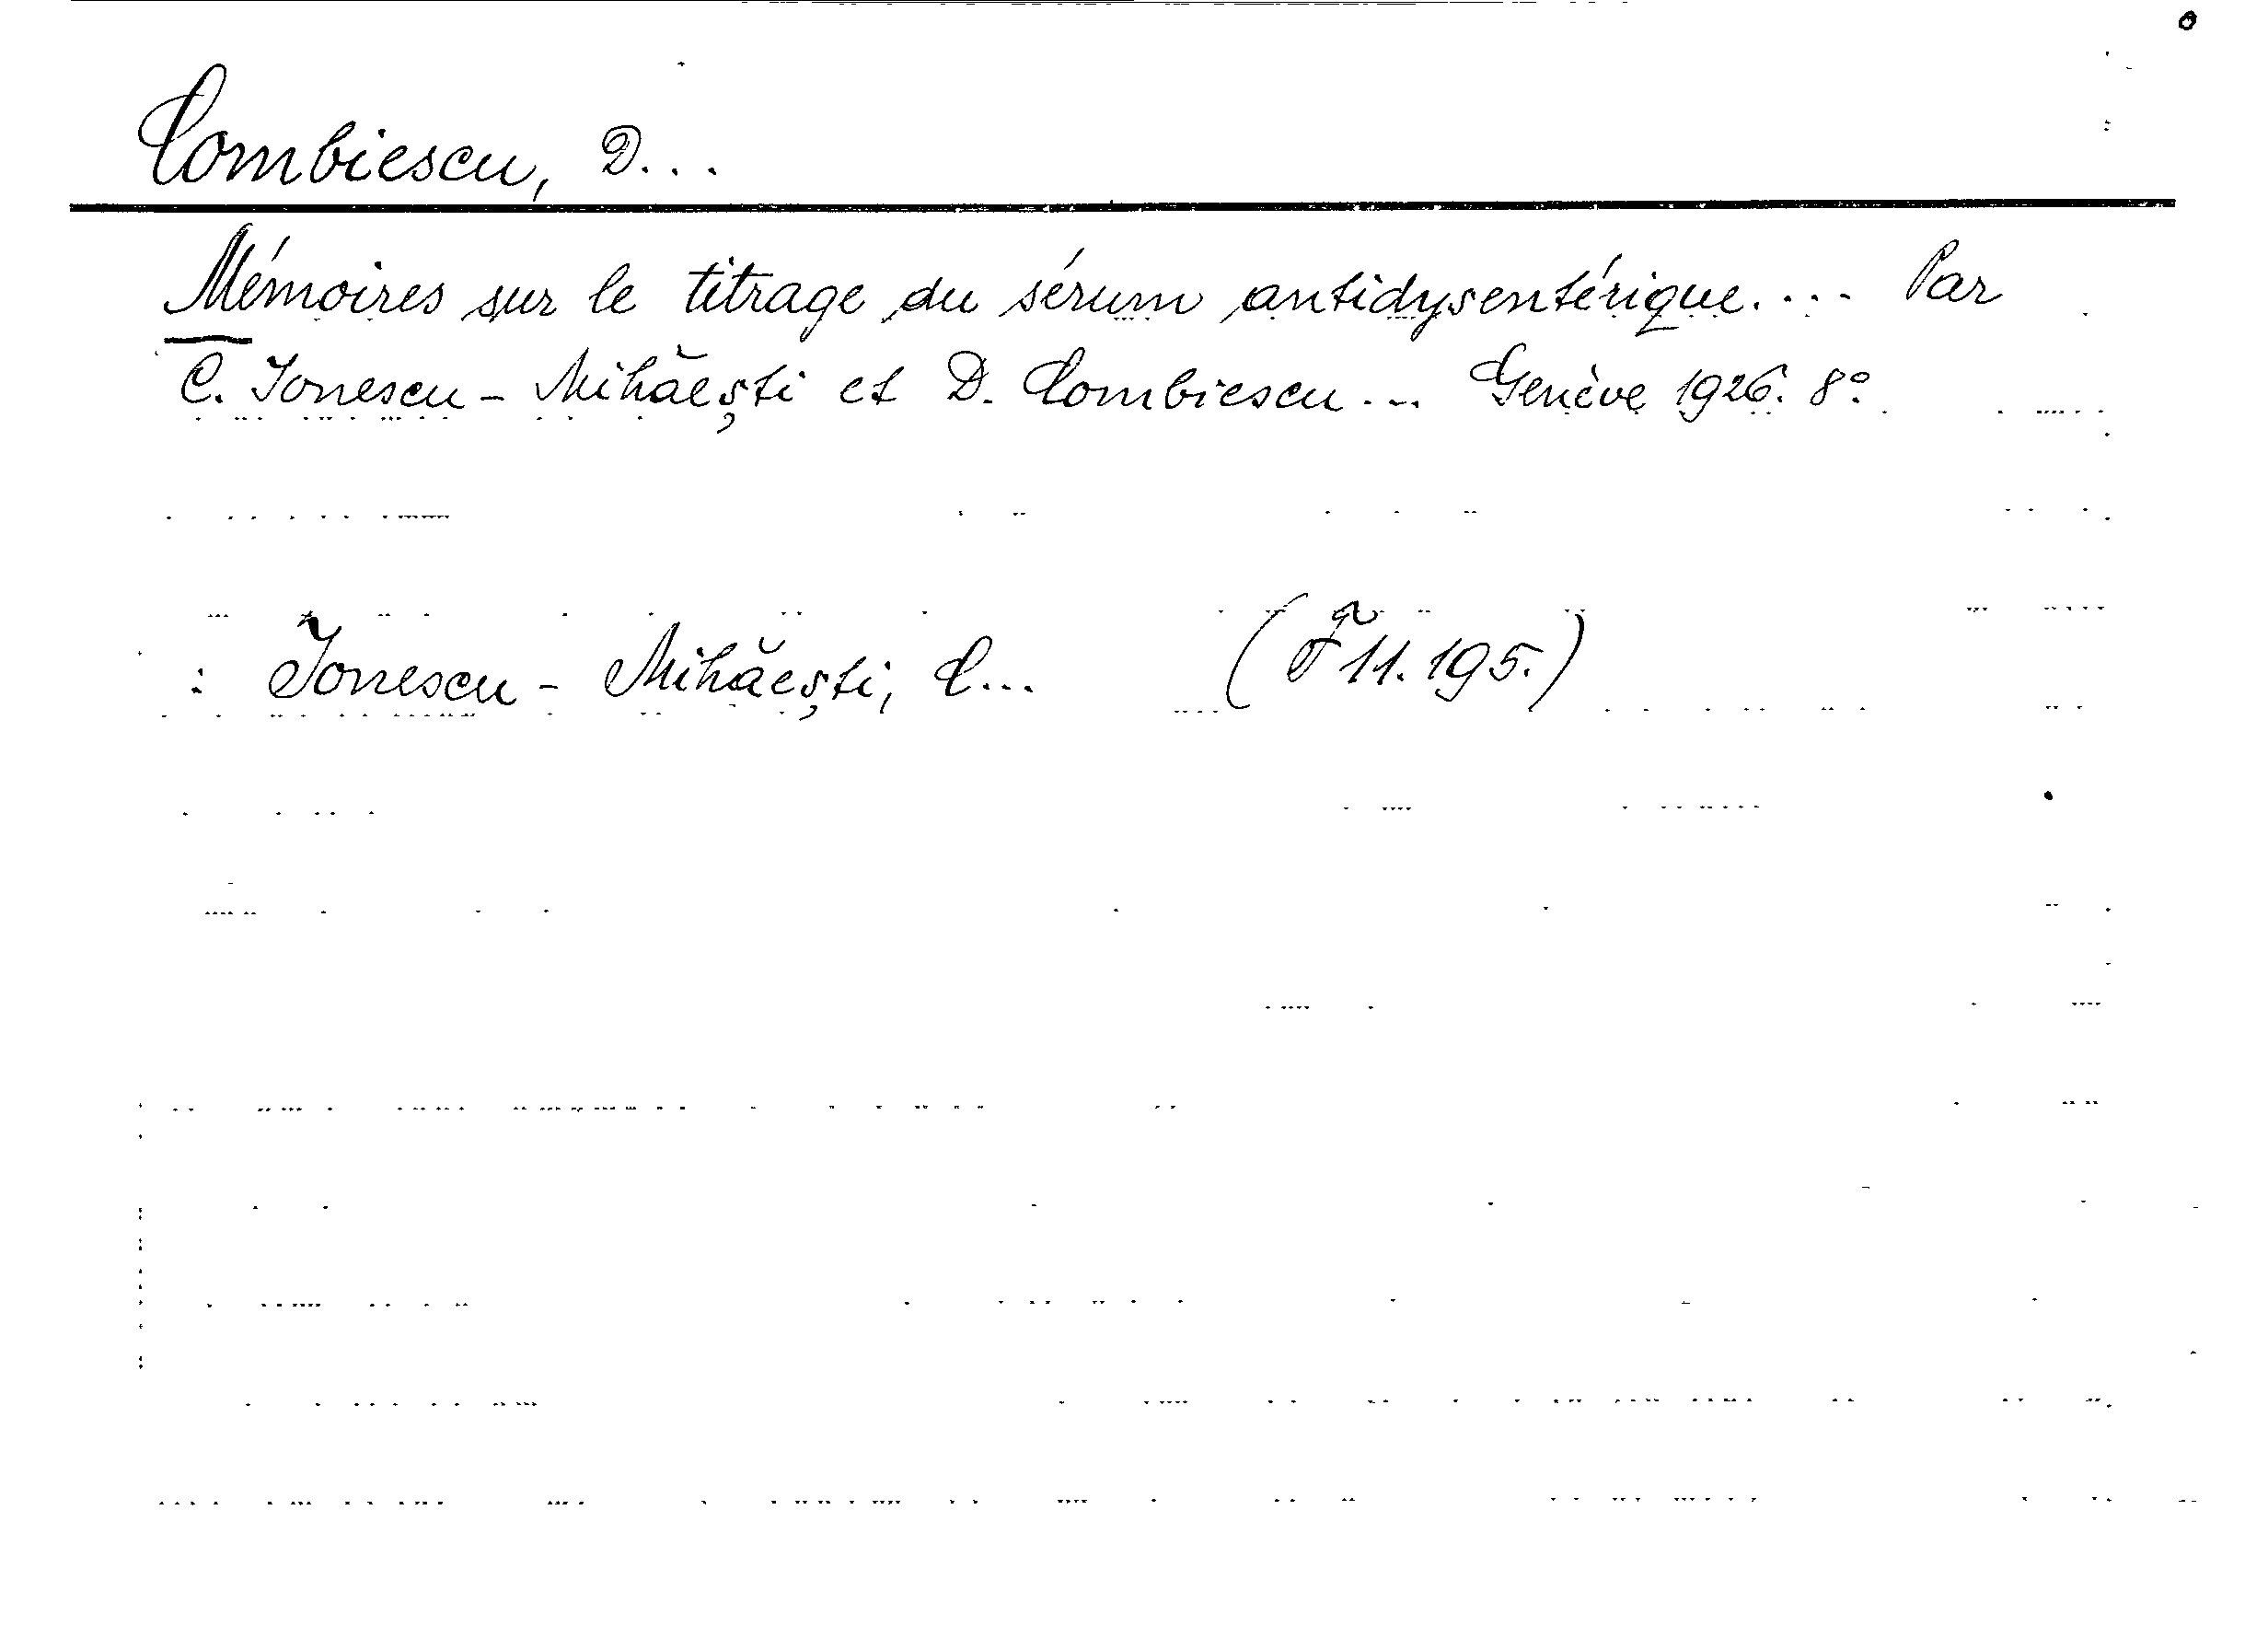 Combiescu, D...
Mémoires sur le titrage du sérum antidysentérique.... Par
C. Ionescu-Mihăești et D. Combiescu... Genève 1926. 8º
: Ionescu-Mihăești, C... (F 11.195.)